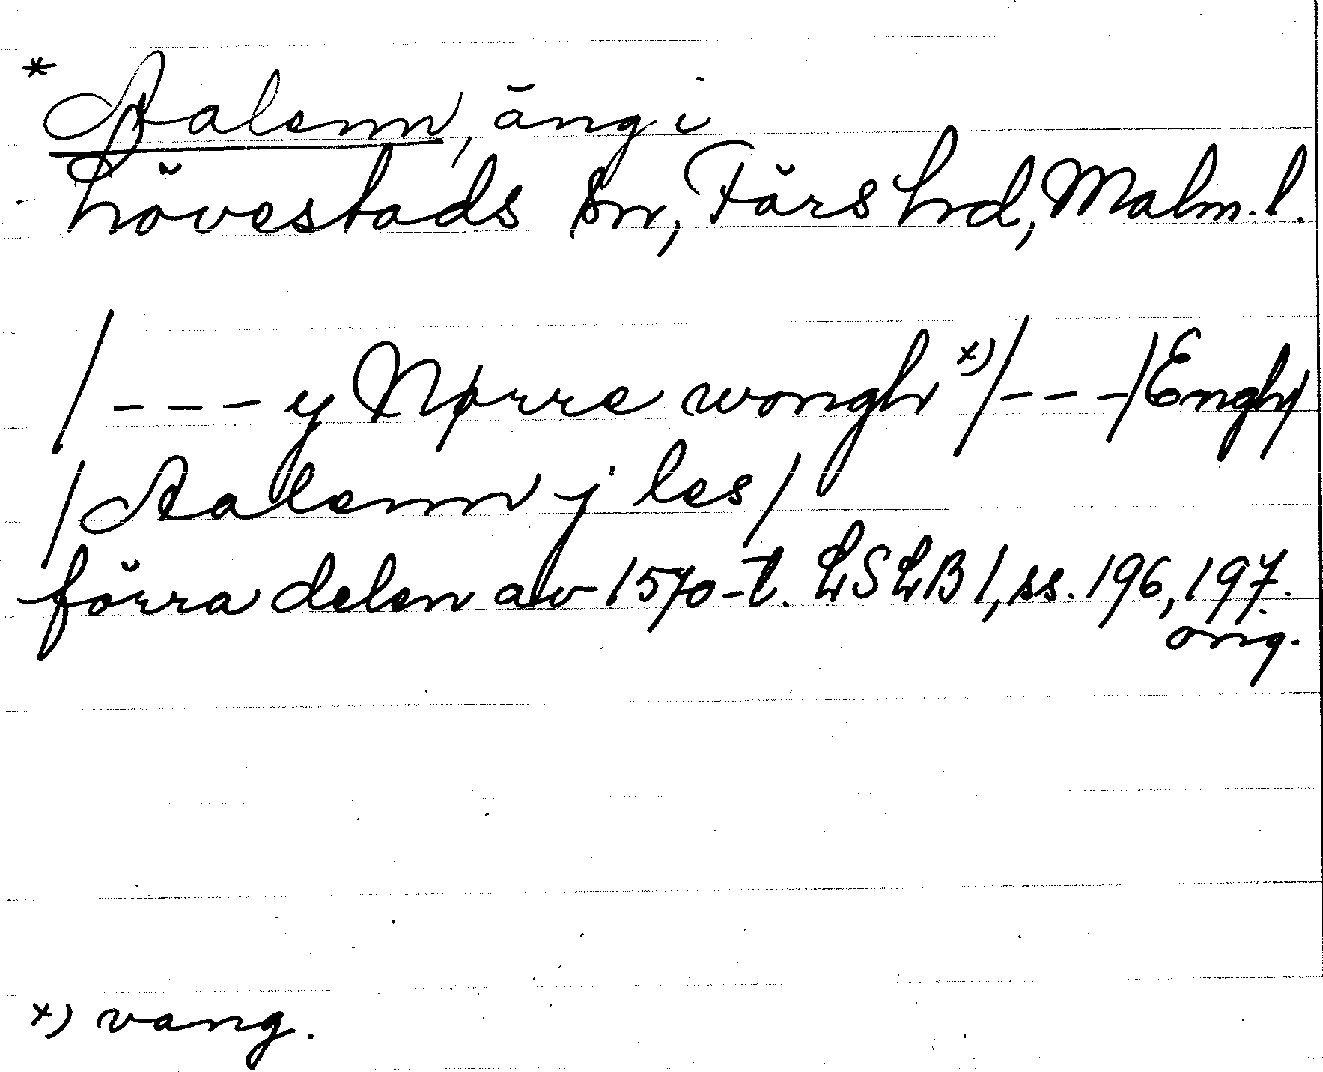 * Aalenn, äng i
Lövestads sn, Färs hd, Malm. l.
/ - - - y Nørre wongh x) / - - - / Engh /
/ Aalenn j les /
förra delen av 1570-t. LSLB 1, ss. 196, 197.
orig.
x) vang.